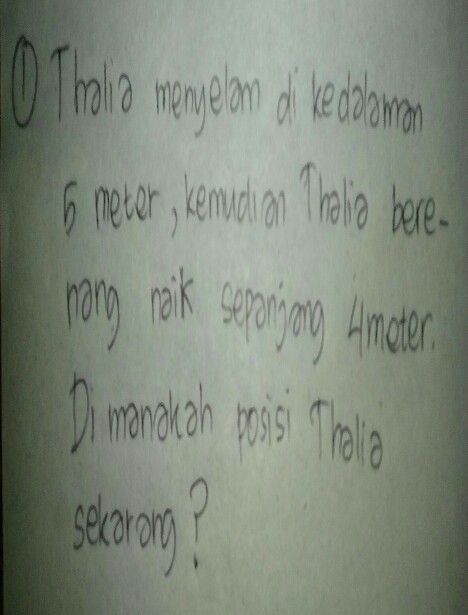 ① Thalia menyelam di kedalaman
5 meter, kemudian Thalia bere-
nang naik sepanjang 4 meter.
Di manakah posisi Thalia
sekarang?